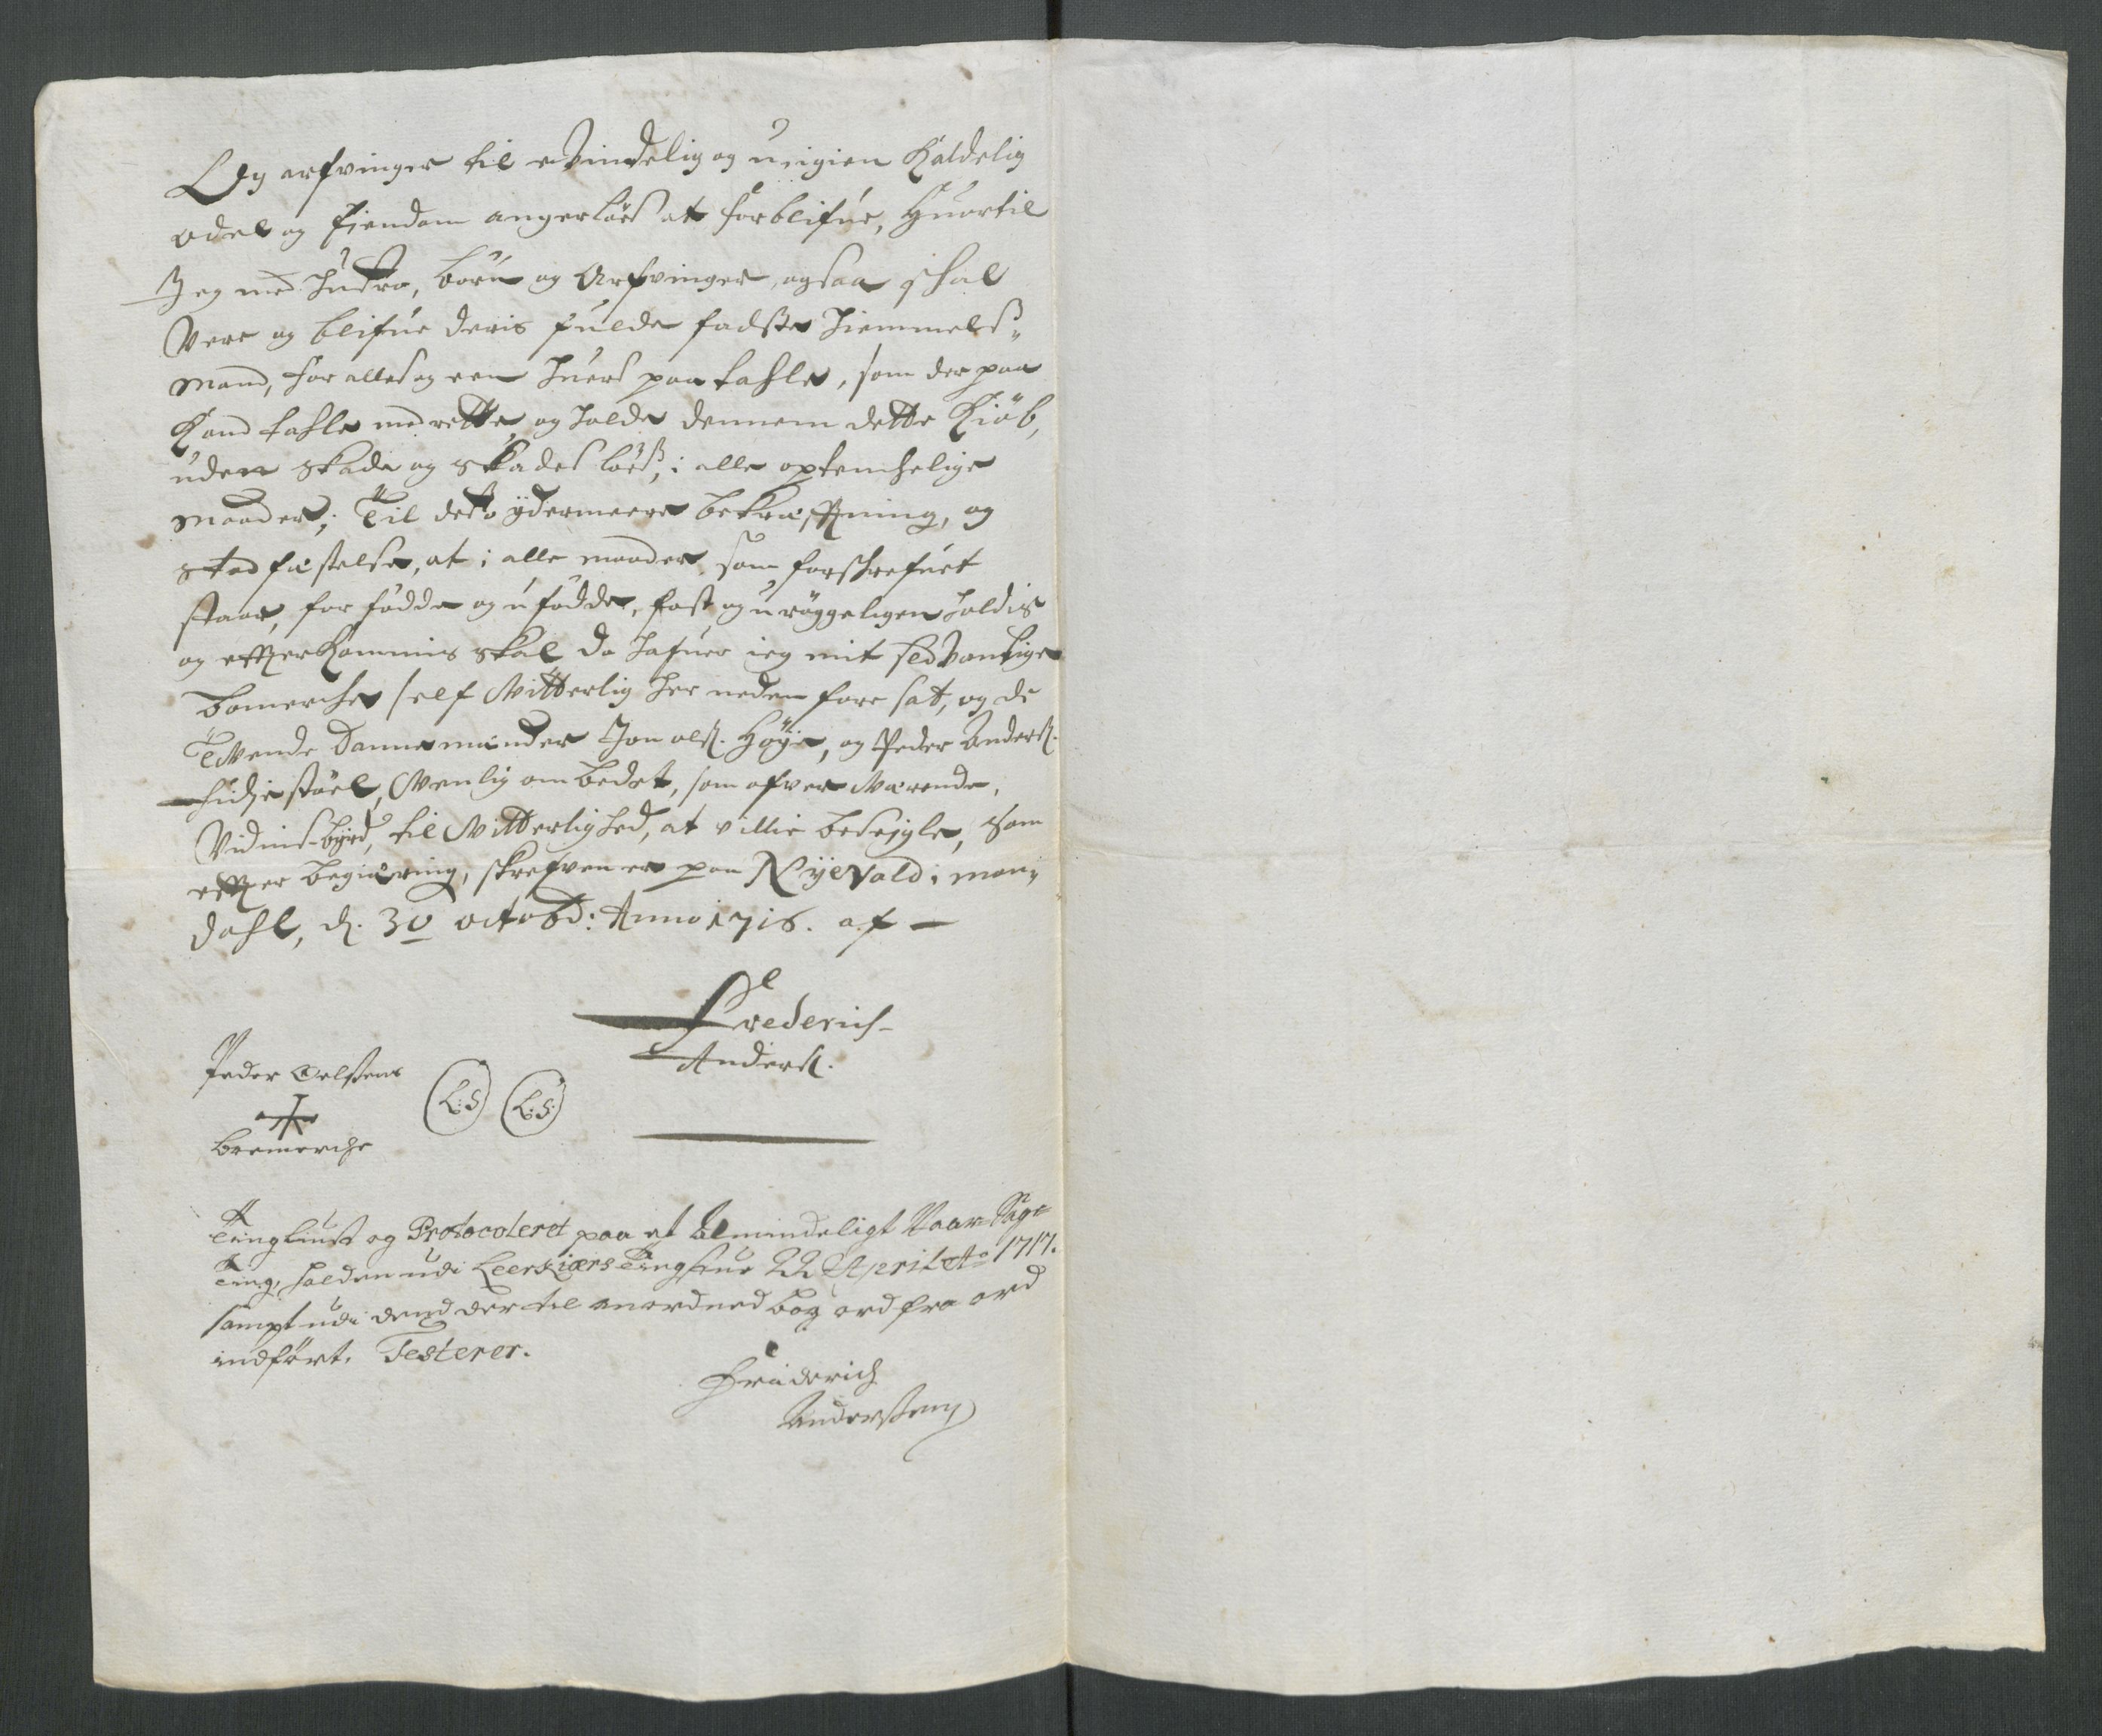 Og arfvinger til evindelig og uigien Kaldelig
odel og Eiendom angerløes at forblifue, Huortil
Jeg med Hustro, børn og Arfvinger, ogsaa skal
Vere og blifue deris fulde fadste Hiemmels„
mand, for alles og een huers paatahle, som der paa
Kand tahle med rette, og holde dennem dette Kiöb,
uden skade og skades löes, i alle optenchelige
maader; Til dets ÿdermeere bekræfftning, og
stadfæstelse, at i alle maader som forschrefuet
staar, for födde og ufödde, fast og urøggeligen holdis
og effterkommis skal, da hafuer ieg mit sedvanlige
bomerche self Vitterlig her neden fore sat, og de
Tvende Dannemænder Jon Olß. Høÿe, og Peder Anderß.
, Venlig ombedet, som ofververende,
Vidnisbÿrd, til Vitterlighed, at villie beseÿgle, som
effter begiæring, skrefven er paa Nÿevald i Man„
dahl, d. 30 octobd: Anno 1716. af —
Frederich
Anderß.
Peder Oelssens
L:S L:S:
boemerche
Tingliust og Protocoleret paa et Almindeligt Vaar Sage
Ting, holden udi Leerskiærs Tingstue 22 April Ao 1717.
sampt udi dend der til anordned bog ord fra ord
indført. Testerer.
Friderich
Anderssen